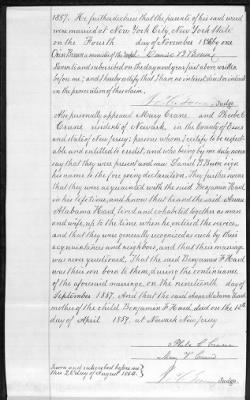 1857. He further declares that the parents of his said ward
were married at New York City, New York State
on the Fourth day of November 1856 by one
Sworn and subscribed on the day and year first above written
before me; and I hereby certify that I have no interest direct or indirect
in the prosecution of this claim.
Judge.
Also personally appeared Mary Crane and Phebe C.
Crane residents of Newark, in the County of Essex
and state of New Jersey; persons whom I certify to be respect-
able and entitled to credit, and who being by me duly sworn
say that they were present and saw Daniel B. Brown sign
his name to the foregoing declaration. They further swear
that they were acquainted with the said Benjamin Hard
in his lifetime, and know that he and the said Anna
Alabama Hard lived and cohabited together as man
and wife, up to the time when he entered the service,
and that they were generally recognized as such by their
acquaintances and neighbors, and that their marriage
was never questioned. That the said Benjamin F. Hard
was their son born to them, during the continuance
of the aforesaid marriage, on the nineteenth day of
September 1857. And that the said Alabama Hard
mother of the child Benjamin F. Hard, died on the
day of April 1859. at Newark New Jersey
Phebe C. Crane
Mary Crane
Sworn and subscribed before me
this day of August 1864.
Judge.